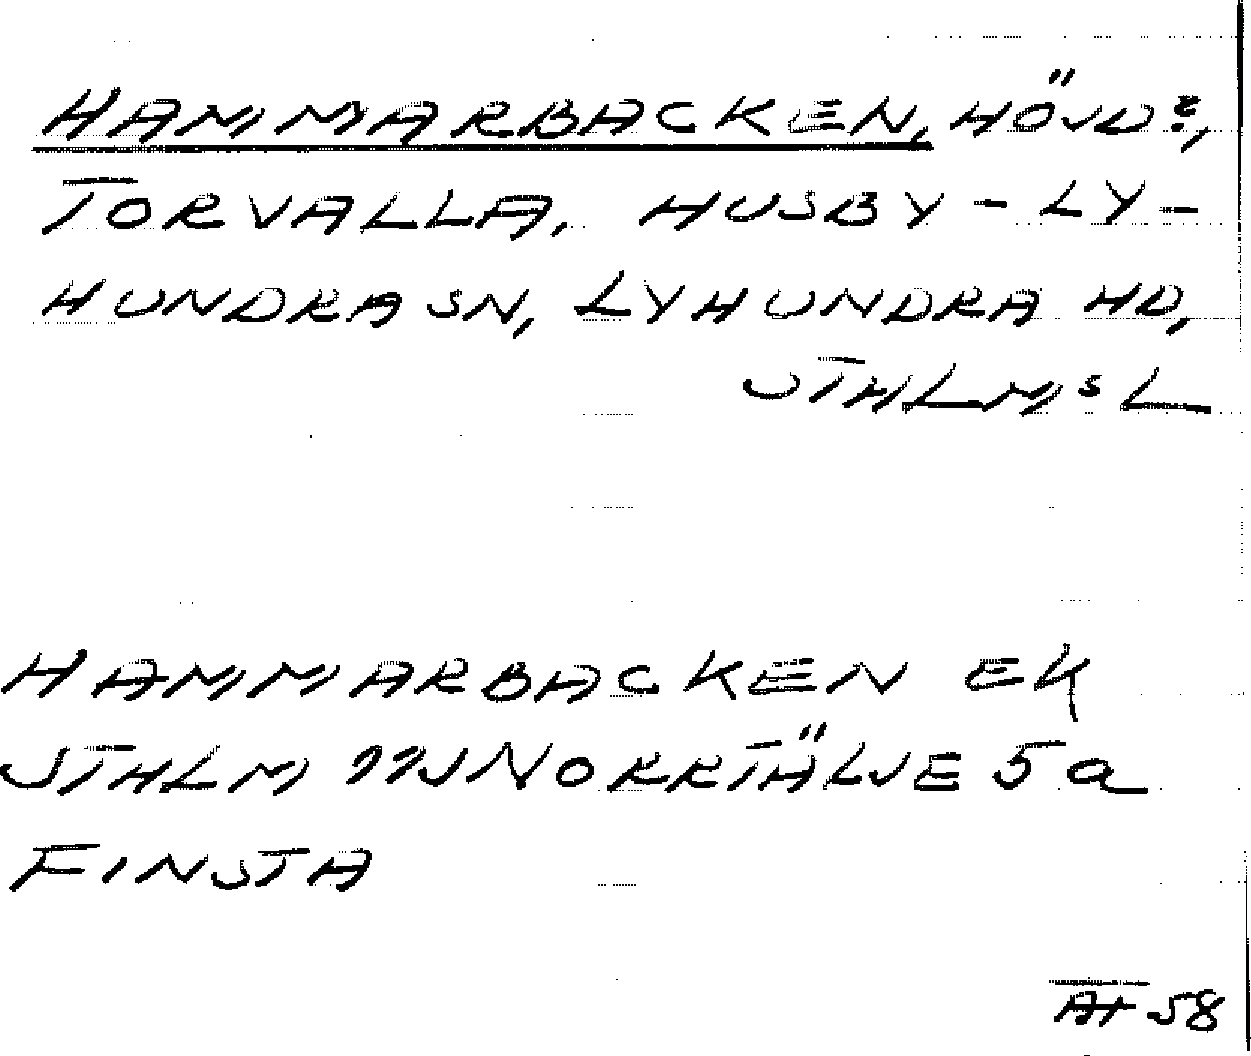 HAMMARBACKEN, HÖJD?,
TORVALLA, HUSBY-LY-
HUNDRA SN, LYHUNDRA HD,
STHLMS L
HAMMARBACKEN EK
STHLM 99J NORRTÄLJE 5a
FINSTA
AH 58